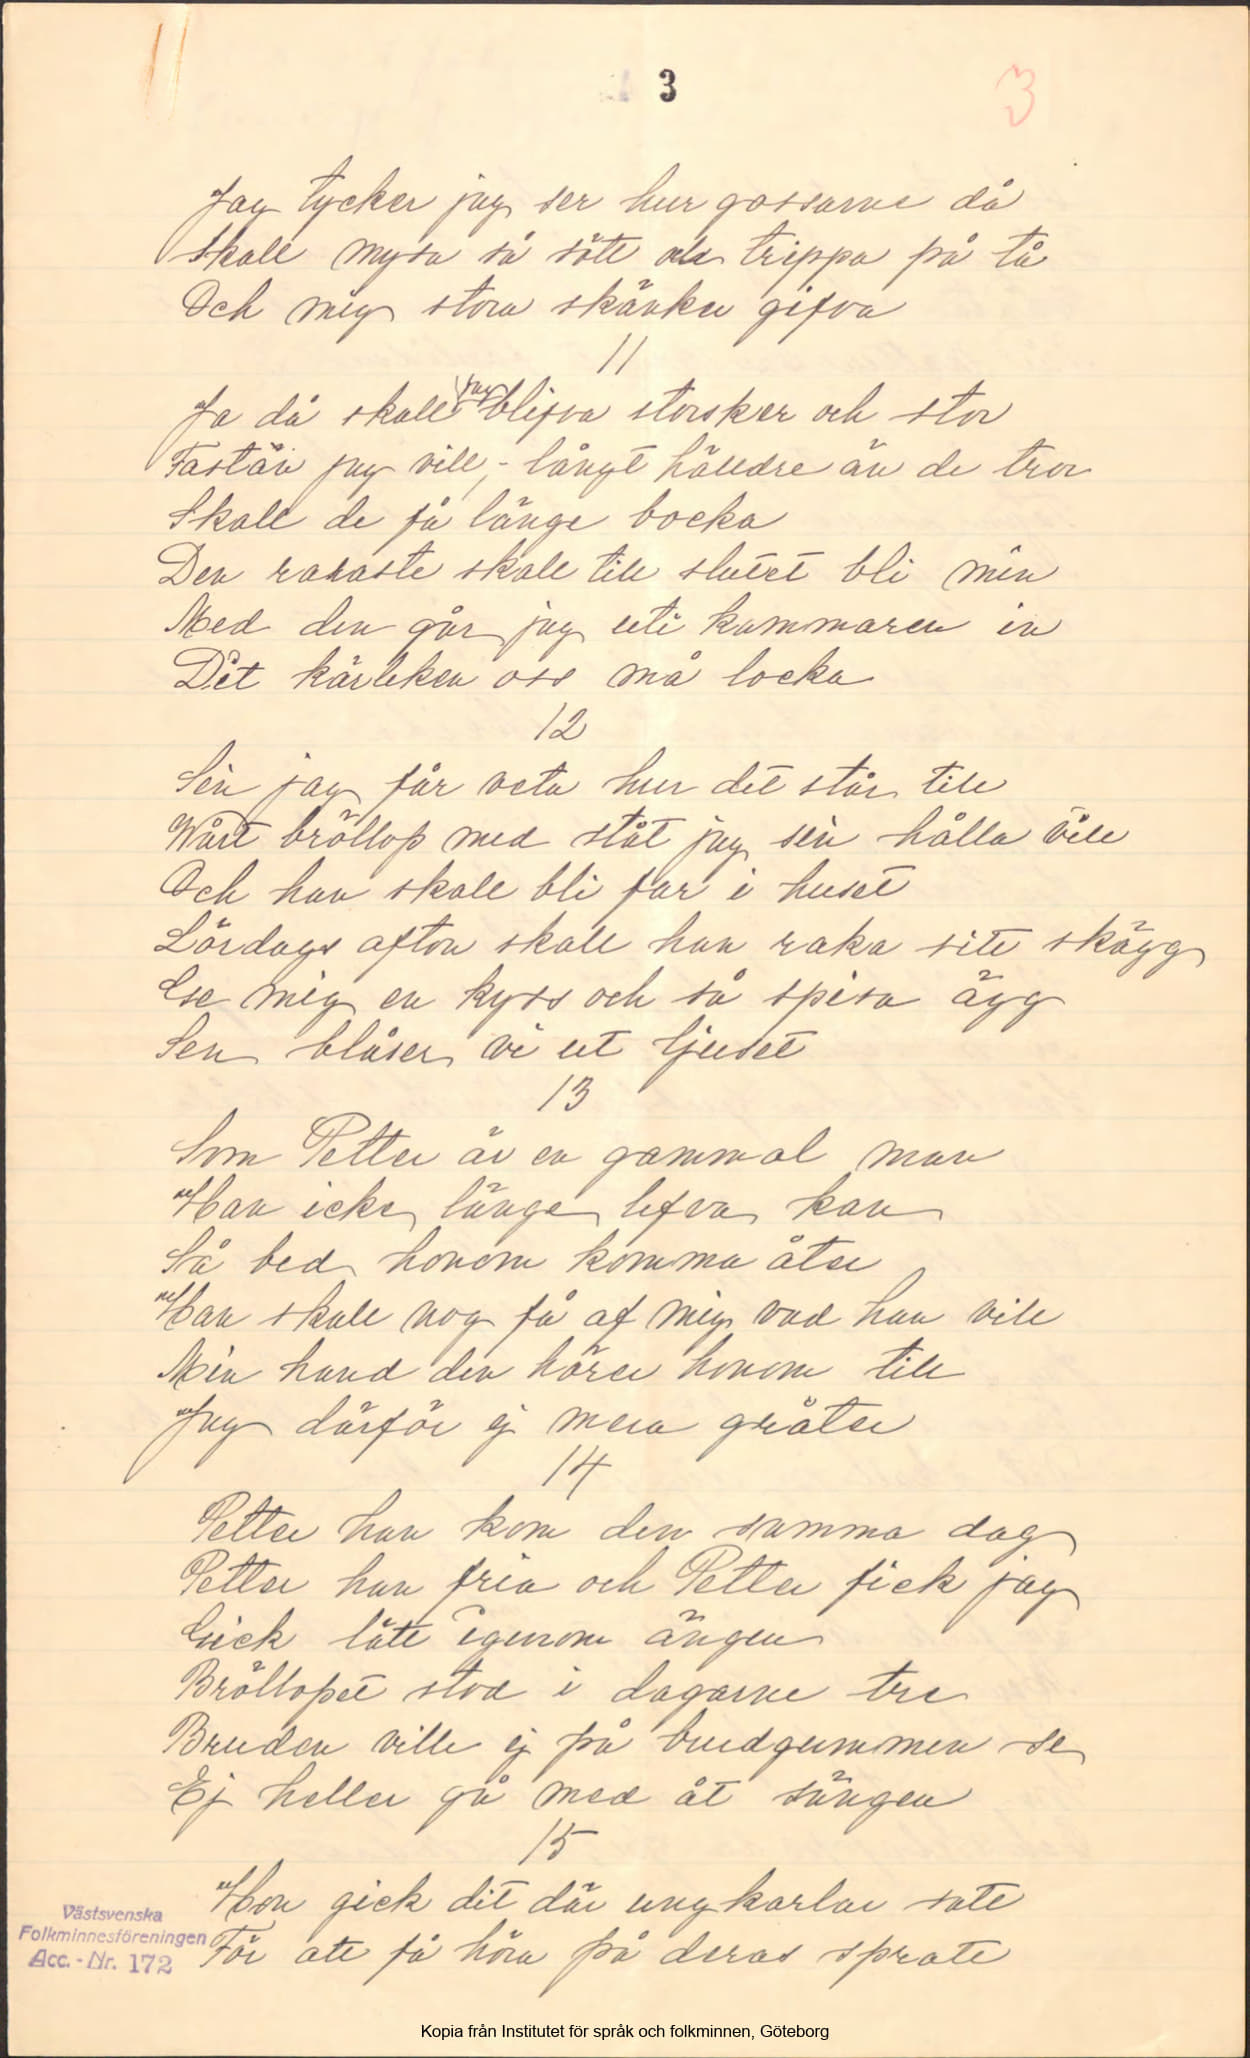 3
3
Jag tycker jag ser hur gossarne då
Skall mysa så sött och trippa på tå
Och mig stora skänker gifva
11
Ja då skall jag blifva storsker och stor
Fastän jag vill, - långt hälldre än de tror
Skall de få länge bocka
Den raraste skall till slutet bli min
Med den går jag uti kammaren in
Dit kärleken oss må locka
12
Sen jag får veta hur det står till
Wårt bröllop med ståt jag sen hålla vill
Och han skall bli far i huset
Lördags afton skall han raka sitt skägg
Ge mig en kyss och så spisa ägg
Sen blåser vi ut ljuset
13
Som Petter är en gammal man
Han icke länge lefva kan
Så bed honom komma åter
Han skall nog få af mig vad han vill
Min hand den hörer honom till
Jag därför ej mera gråter
14
Petter han kom den samma dag
Petter han fria och Petter fick jag
Gick lätt igenom ängen
Bröllopet stod i dagarne tre
Bruden ville ej på brudgummen se
Ej heller gå med åt sängen
15
Hon gick dit där ungkarlar satt
För att få höra på deras spratt
Västsvenska
Folkminnesföreningen
Acc.-Nr. 172
Kopia från Institutet för språk och folkminnen, Göteborg